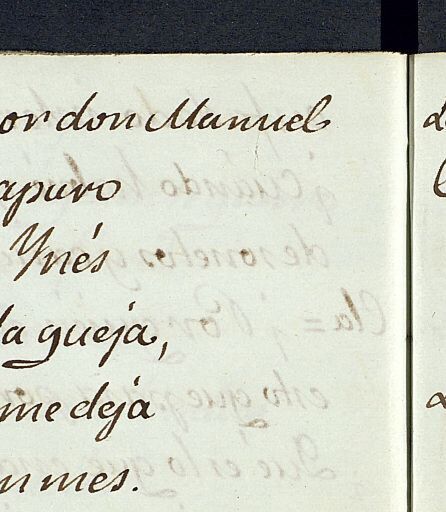 or don Manuel
apuro
Ynés
la queja,
me deja
n mes.